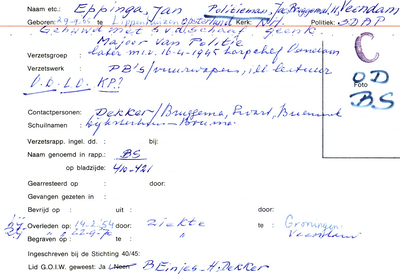 Naam etc.: Eppinga, Jan Politieman, Jac Bruggema, H. Veendam
Geboren: 29-9- te Kerk: N.H. Politiek: SDAP
Gehuwd met
Majoor van Politie
Verzetsgroep : later m.i.v. 16-4-1945 korpschef Veendam
Verzetswerk : PB's/vuurwapens, ill. lectuur
O.D.-L.O. KP?
C
Foto
OD
BS
Contactpersonen: Dekker/Bruggema, Swart,
Schuilnamen :
Verzetsrapp. ingel. dd. : bij:
Naam genoemd in rapp.: BS
op bladzijde: 410-421
Gearresteerd op : door:
Gevangen gezeten in :
Bevrijd op : uit : door:
Overleden op : 14-2-'54 door: ziekte te : Groningen
Begraven op : te : Veendam
Ingeschreven bij de Stichting 40/45:
Lid G.O.I.W. geweest: Ja Neen B Einjes-H. Dekker